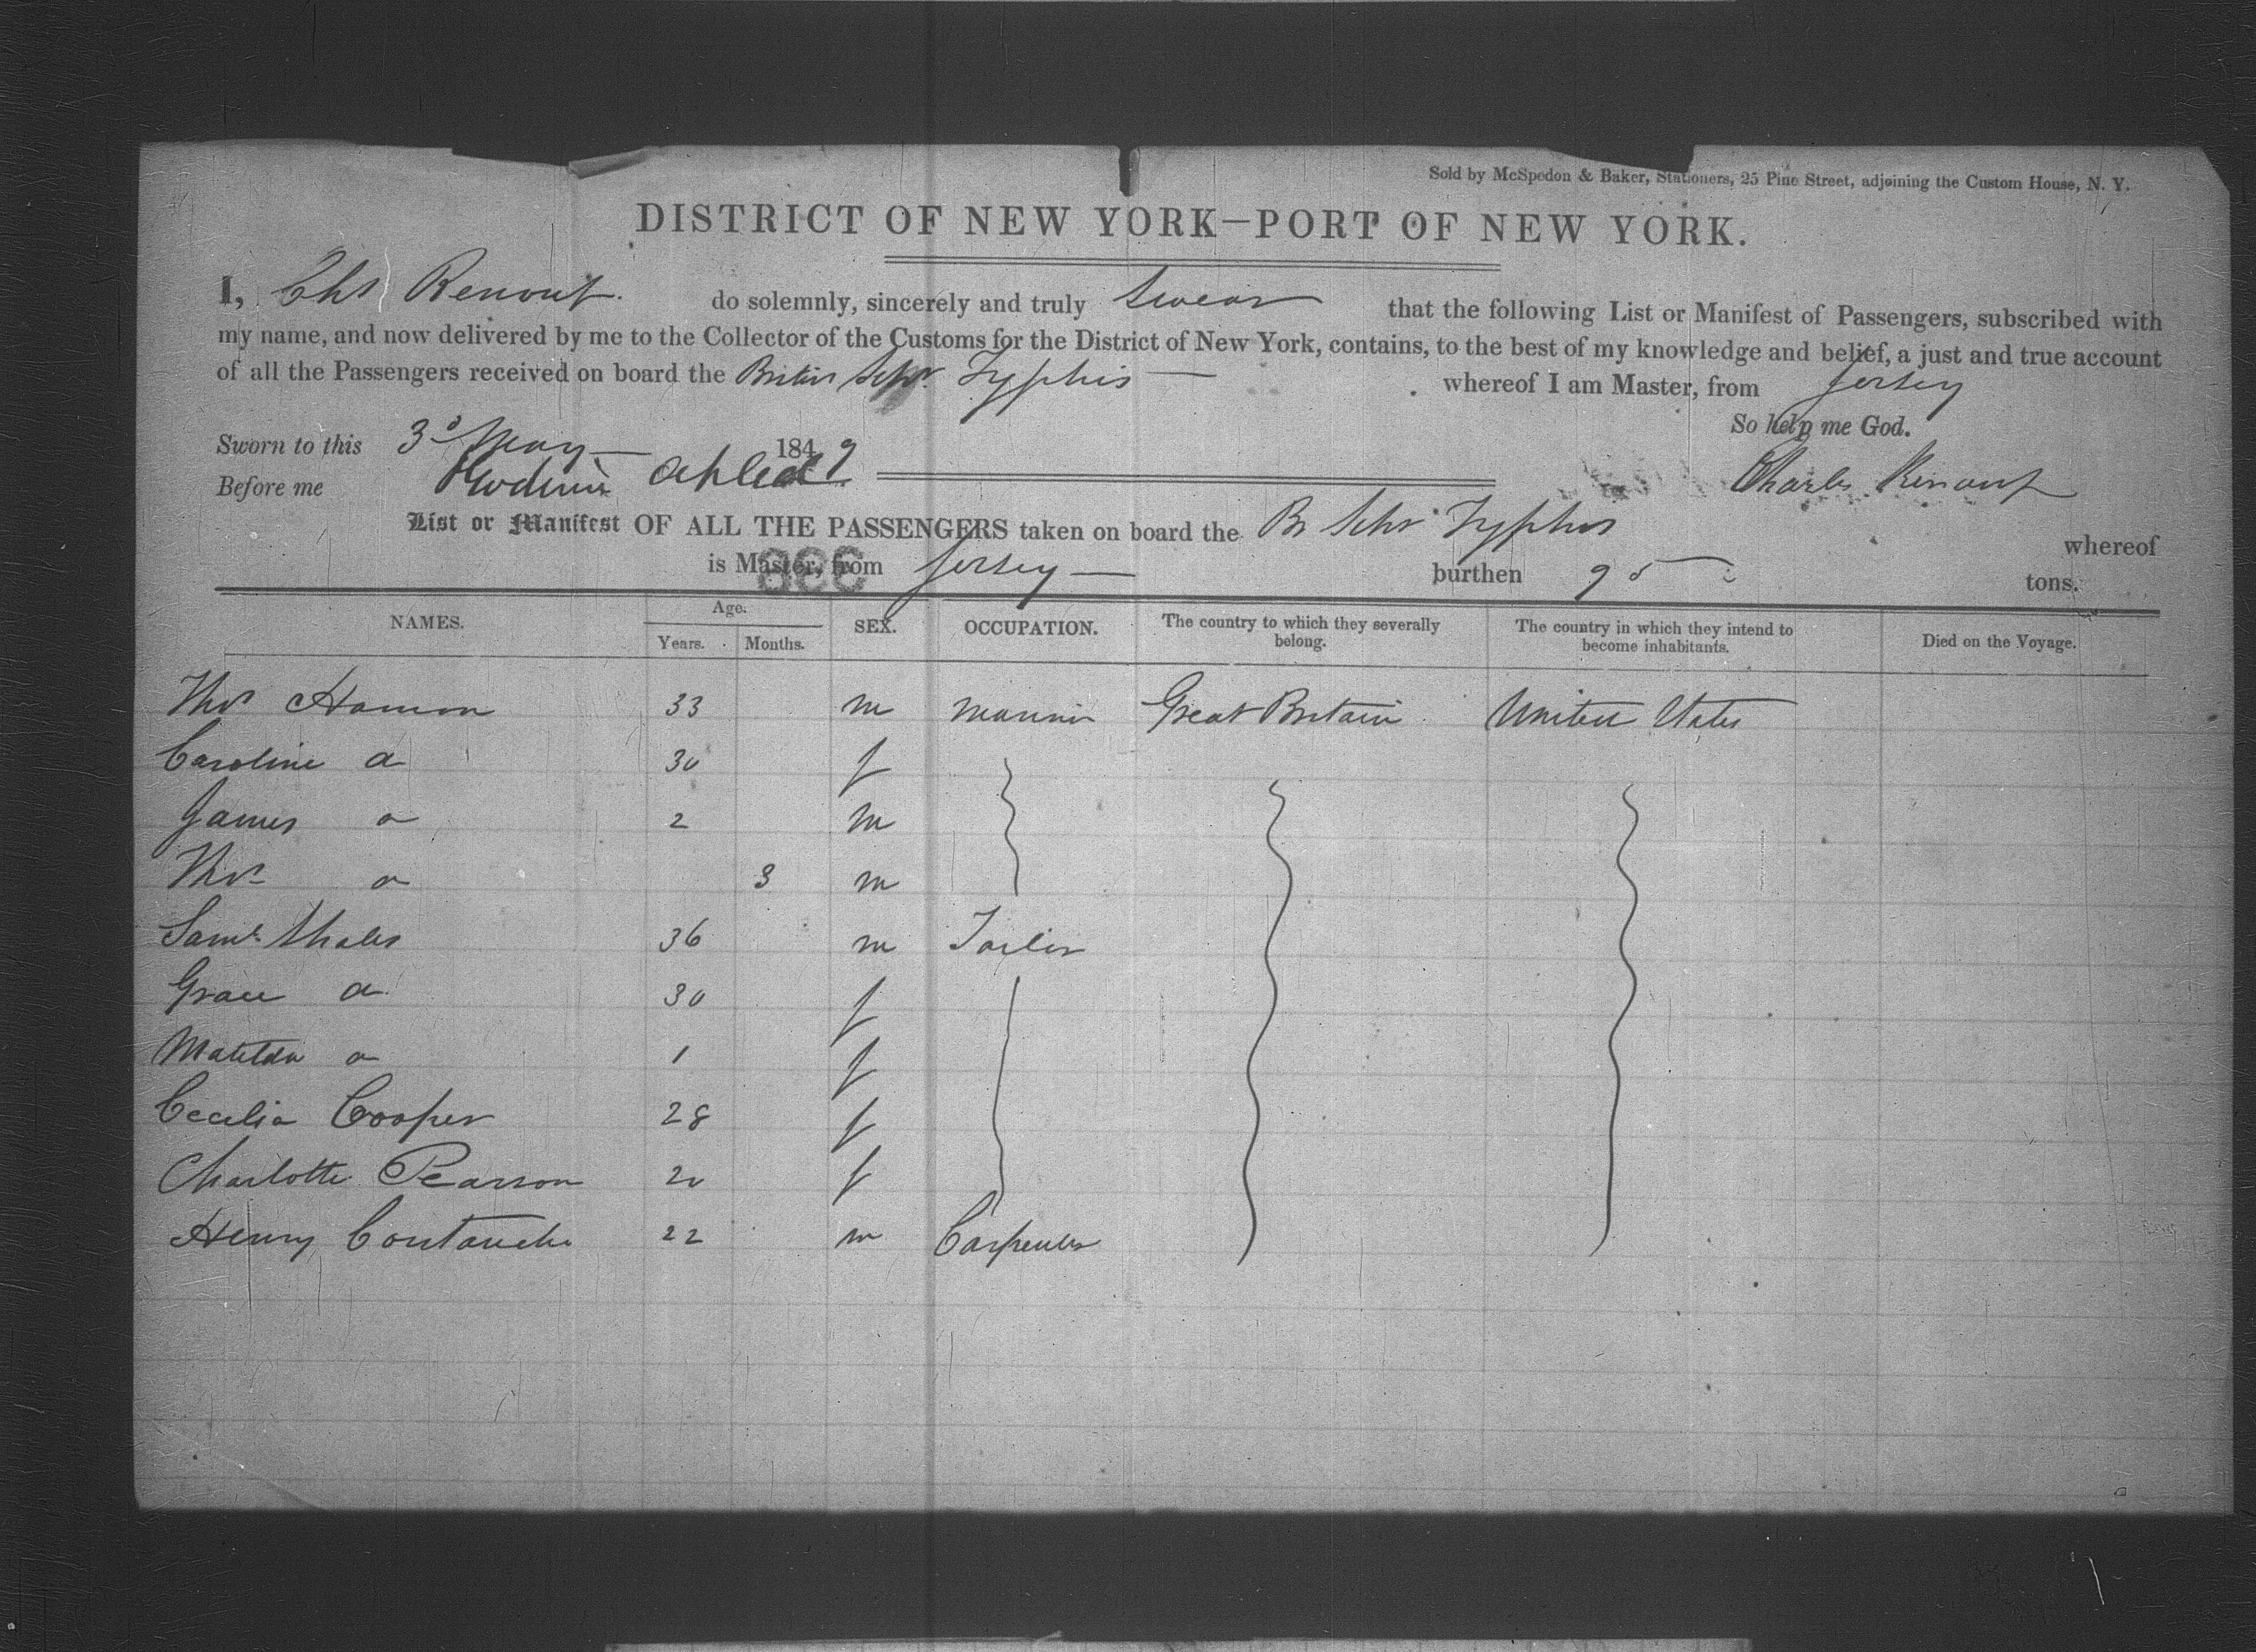 Sold by McSpedon & Baker, Stationers, 25 Pine Street, adjoining the Custom House, N. Y.
DISTRICT OF NEW YORK—PORT OF NEW YORK.
I, Chs Renouf. do solemnly, sincerely and truly swear that the following List or Manifest of Passengers, subscribed with
my name, and now delivered by me to the Collector of the Customs for the District of New York, contains, to the best of my knowledge and belief, a just and true account
of all the Passengers received on board the British Schr. Typhis whereof I am Master, from Jersey
So help me God.
Sworn to this 3d May 1849
Before me Charles Renouf
List or Manifest OF ALL THE PASSENGERS taken on board the Br Schr Typhis whereof
is Master, from Jersey burthen 95 tons.
338
NAMES. Age. Years. Months. SEX. OCCUPATION. The country to which they severally belong. The country in which they intend to become inhabitants. Died on the Voyage.
Thos Hamon 33 m mariner Great Britain United States
Caroline do 30 f
James do 2 m
Thos do 3 m
Saml. 36 m Tailor
Grace do 30 f
Matilda do 1 f
Cecelia Cooper 28 f
Charlotte Pearson 20 f
Henry Coutanche 22 m Carpenter